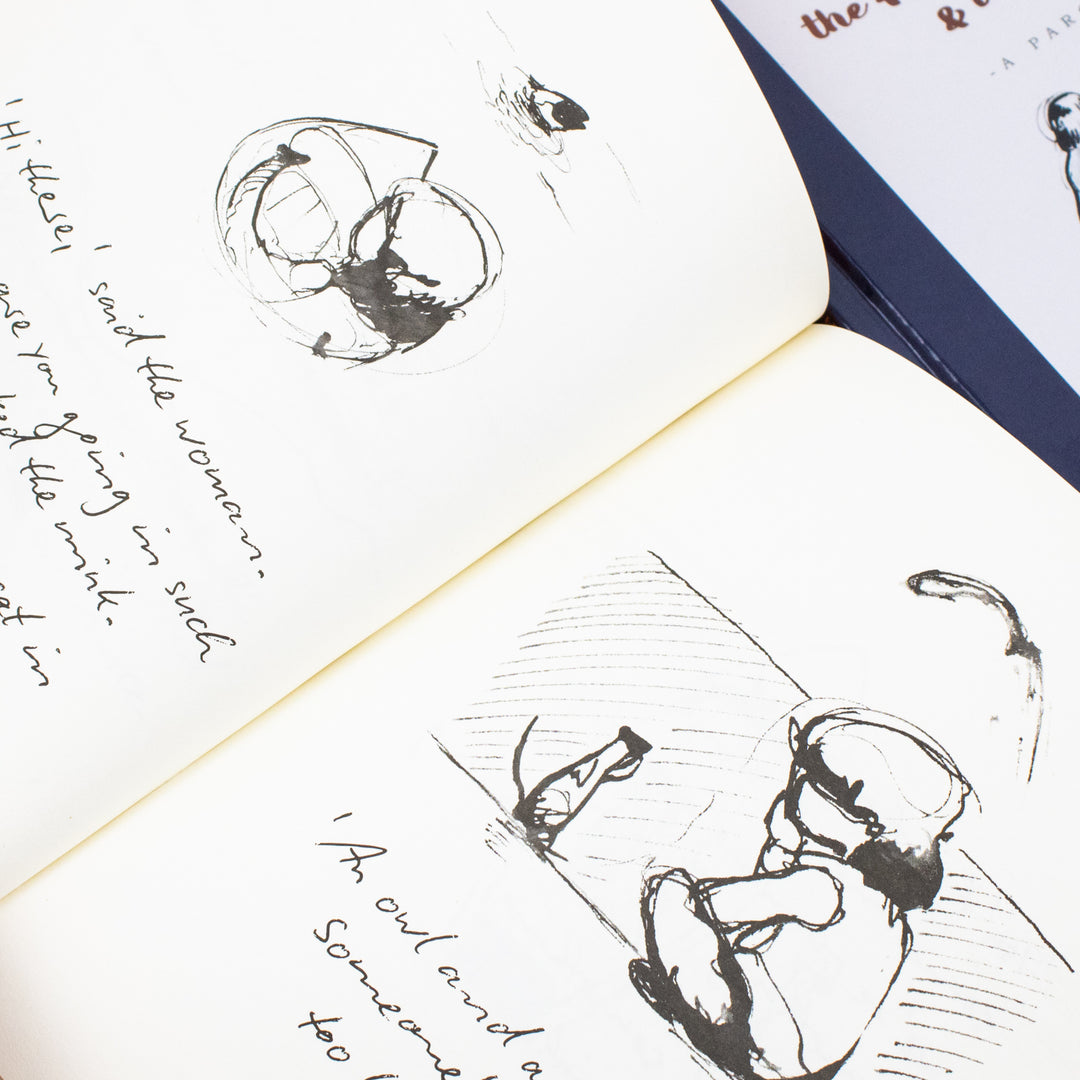 'Hi there,' said the woman.
are you going in such
the mink.
in
'An owl and a
someone
too
the
&
- A PAR